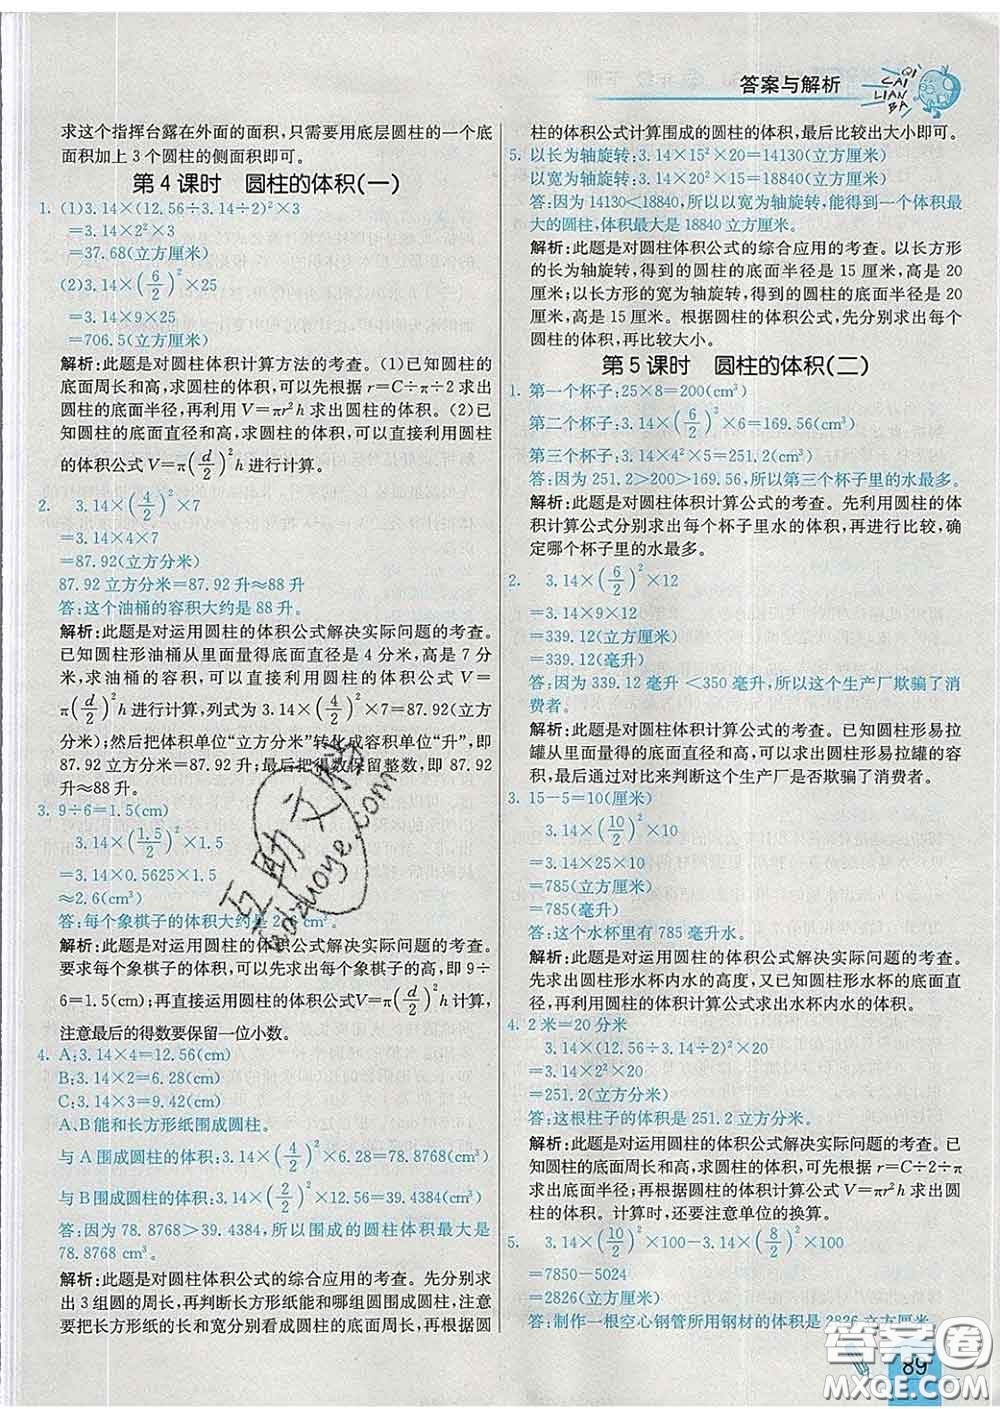 答案与解析
QI CAI LIAN BA
求这个指挥台露在外面的面积,只需要用底层圆柱的一个底
面积加上3个圆柱的侧面积即可。
第4课时 圆柱的体积(一)
1. (1)3.14×(12.56÷3.14÷2)²×3
=3.14×2²×3
=37.68(立方厘米)
(2)3.14×(6/2)²×25
=3.14×9×25
=706.5(立方厘米)
解析:此题是对圆柱体积计算方法的考查。(1)已知圆柱
的底面周长和高,求圆柱的体积,可以先根据r=C÷π÷2求出
圆柱的底面半径,再利用V=πr²h求出圆柱的体积。(2)已
知圆柱的底面直径和高,求圆柱的体积,可以直接利用圆柱
的体积公式V=π(d/2)²h进行计算。
2. 3.14×(4/2)²×7
=3.14×4×7
=87.92(立方分米)
87.92立方分米=87.92升≈88升
答:这个油桶的容积大约是88升。
解析:此题是对运用圆柱的体积公式解决实际问题的考查。
已知圆柱形油桶从里面量得底面直径是4分米,高是7分
米,求油桶的容积,可以直接利用圆柱的体积公式V=
π(d/2)²h进行计算,列式为3.14×(4/2)²×7=87.92(立方
分米);然后把体积单位“立方分米”转化成容积单位“升”,即
87.92立方分米=87.92升;最后把得数保留整数,即87.92
升≈88升。
3. 9÷6=1.5(cm)
3.14×(1.5/2)²×1.5
=3.14×0.5625×1.5
≈2.6(cm³)
答:每个象棋子的体积大约是2.6 cm³。
解析:此题是对运用圆柱的体积公式解决实际问题的考查。
要求每个象棋子的体积,可以先求出每个象棋子的高,即9÷
6=1.5(cm);再直接运用圆柱的体积公式V=π(d/2)²h计算,
注意最后的得数要保留一位小数。
4. A:3.14×4=12.56(cm)
B:3.14×2=6.28(cm)
C:3.14×3=9.42(cm)
A、B能和长方形纸围成圆柱。
与A围成圆柱的体积:3.14×(4/2)²×6.28=78.8768(cm³)
与B围成圆柱的体积:3.14×(2/2)²×12.56=39.4384(cm³)
答:因为78.8768>39.4384,所以围成的圆柱体积最大是
78.8768 cm³。
解析:此题是对圆柱体积公式的综合应用的考查。先分别求
出3组圆的周长,再判断长方形纸能和哪组圆围成圆柱,注意
要把长方形纸的长和宽分别看成圆柱的底面周长,再根据圆
柱的体积公式计算围成的圆柱的体积,最后比较出大小即可。
5. 以长为轴旋转:3.14×15²×20=14130(立方厘米)
以宽为轴旋转:3.14×20²×15=18840(立方厘米)
答:因为14130<18840,所以以宽为轴旋转,能得到一个体积
最大的圆柱,体积最大是18840立方厘米。
解析:此题是对圆柱体积公式的综合应用的考查。以长方形
的长为轴旋转,得到的圆柱的底面半径是15厘米,高是20
厘米;以长方形的宽为轴旋转,得到的圆柱的底面半径是20
厘米,高是15厘米。根据圆柱的体积公式,先分别求出每个
圆柱的体积,再比较大小。
第5课时 圆柱的体积(二)
1. 第一个杯子:25×8=200(cm³)
第二个杯子:3.14×(6/2)²×6=169.56(cm³)
第三个杯子:3.14×4²×5=251.2(cm³)
答:因为251.2>200>169.56,所以第三个杯子里的水最多。
解析:此题是对圆柱体积计算公式的考查。先利用圆柱的体
积计算公式分别求出每个杯子里水的体积,再进行比较,确
定哪个杯子里的水最多。
2. 3.14×(6/2)²×12
=3.14×9×12
=339.12(立方厘米)
=339.12(毫升)
答:因为339.12毫升<350毫升,所以这个生产厂欺骗了消
费者。
解析:此题是对圆柱体积计算公式的考查。已知圆柱形易拉
罐从里面量得的底面直径和高,可以求出圆柱形易拉罐的容
积,最后通过对比来判断这个生产厂是否欺骗了消费者。
3. 15-5=10(厘米)
3.14×(10/2)²×10
=3.14×25×10
=785(立方厘米)
=785(毫升)
答:这个水杯里有785毫升水。
解析:此题是对运用圆柱的体积公式解决实际问题的考查。
先求出圆柱形水杯内水的高度,又已知圆柱形水杯的底面直
径,再利用圆柱的体积计算公式求出水杯内水的体积。
4. 2米=20分米
3.14×(12.56÷3.14÷2)²×20
=3.14×2²×20
=251.2(立方分米)
答:这根柱子的体积是251.2立方分米。
解析:此题是对运用圆柱的体积公式解决实际问题的考查。已
知圆柱的底面周长和高,求圆柱的体积,可以先根据r=C÷2÷π
求出底面半径;再根据圆柱的体积计算公式V=πr²h求出圆柱
的体积。计算时,还要注意单位的换算。
5. 3.14×(10/2)²×100-3.14×(8/2)²×100
=7850-5024
=2826(立方厘米)
答:制作一根空心钢管所用钢材的体积是2826立方厘米。
89
互助文档
答案圈
MXQE.COM